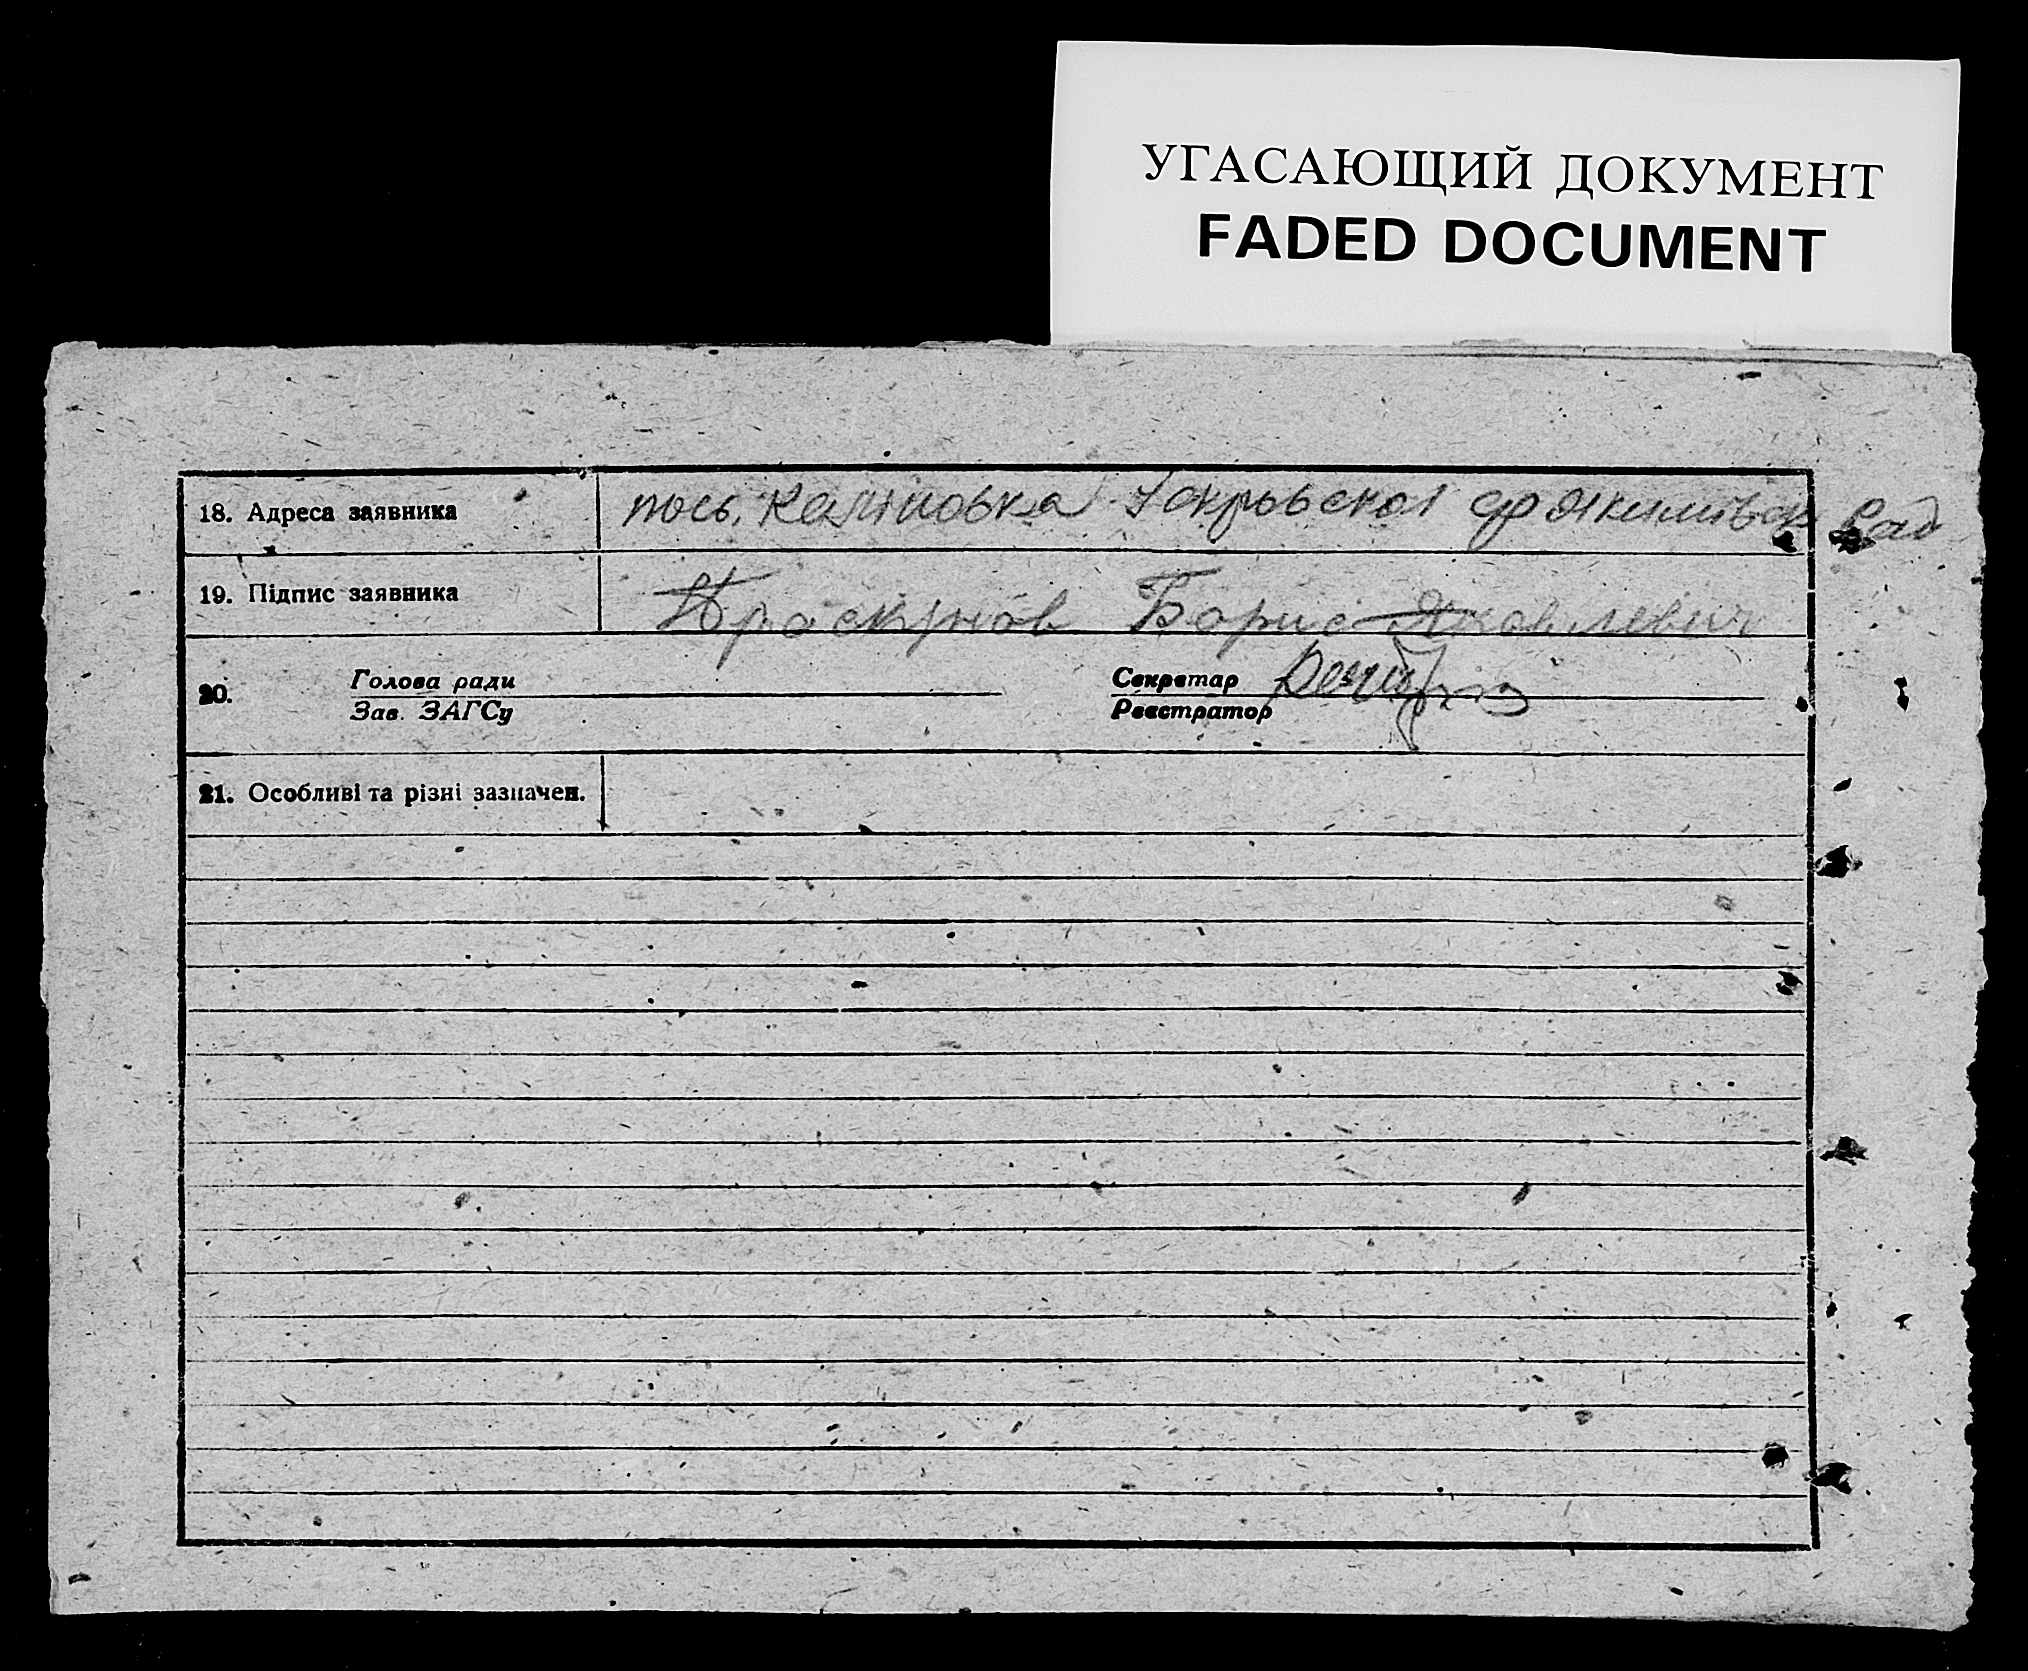 УГАСАЮЩИЙ ДОКУМЕНТ
FADED DOCUMENT
18. Адреса заявника пось. Калиновка
19. Підпис заявника Проскунов Борис Яковлевич
20. Голова ради Секретар
Зав. ЗАГСу Реєстратор
21. Особливі та різні зазначен.